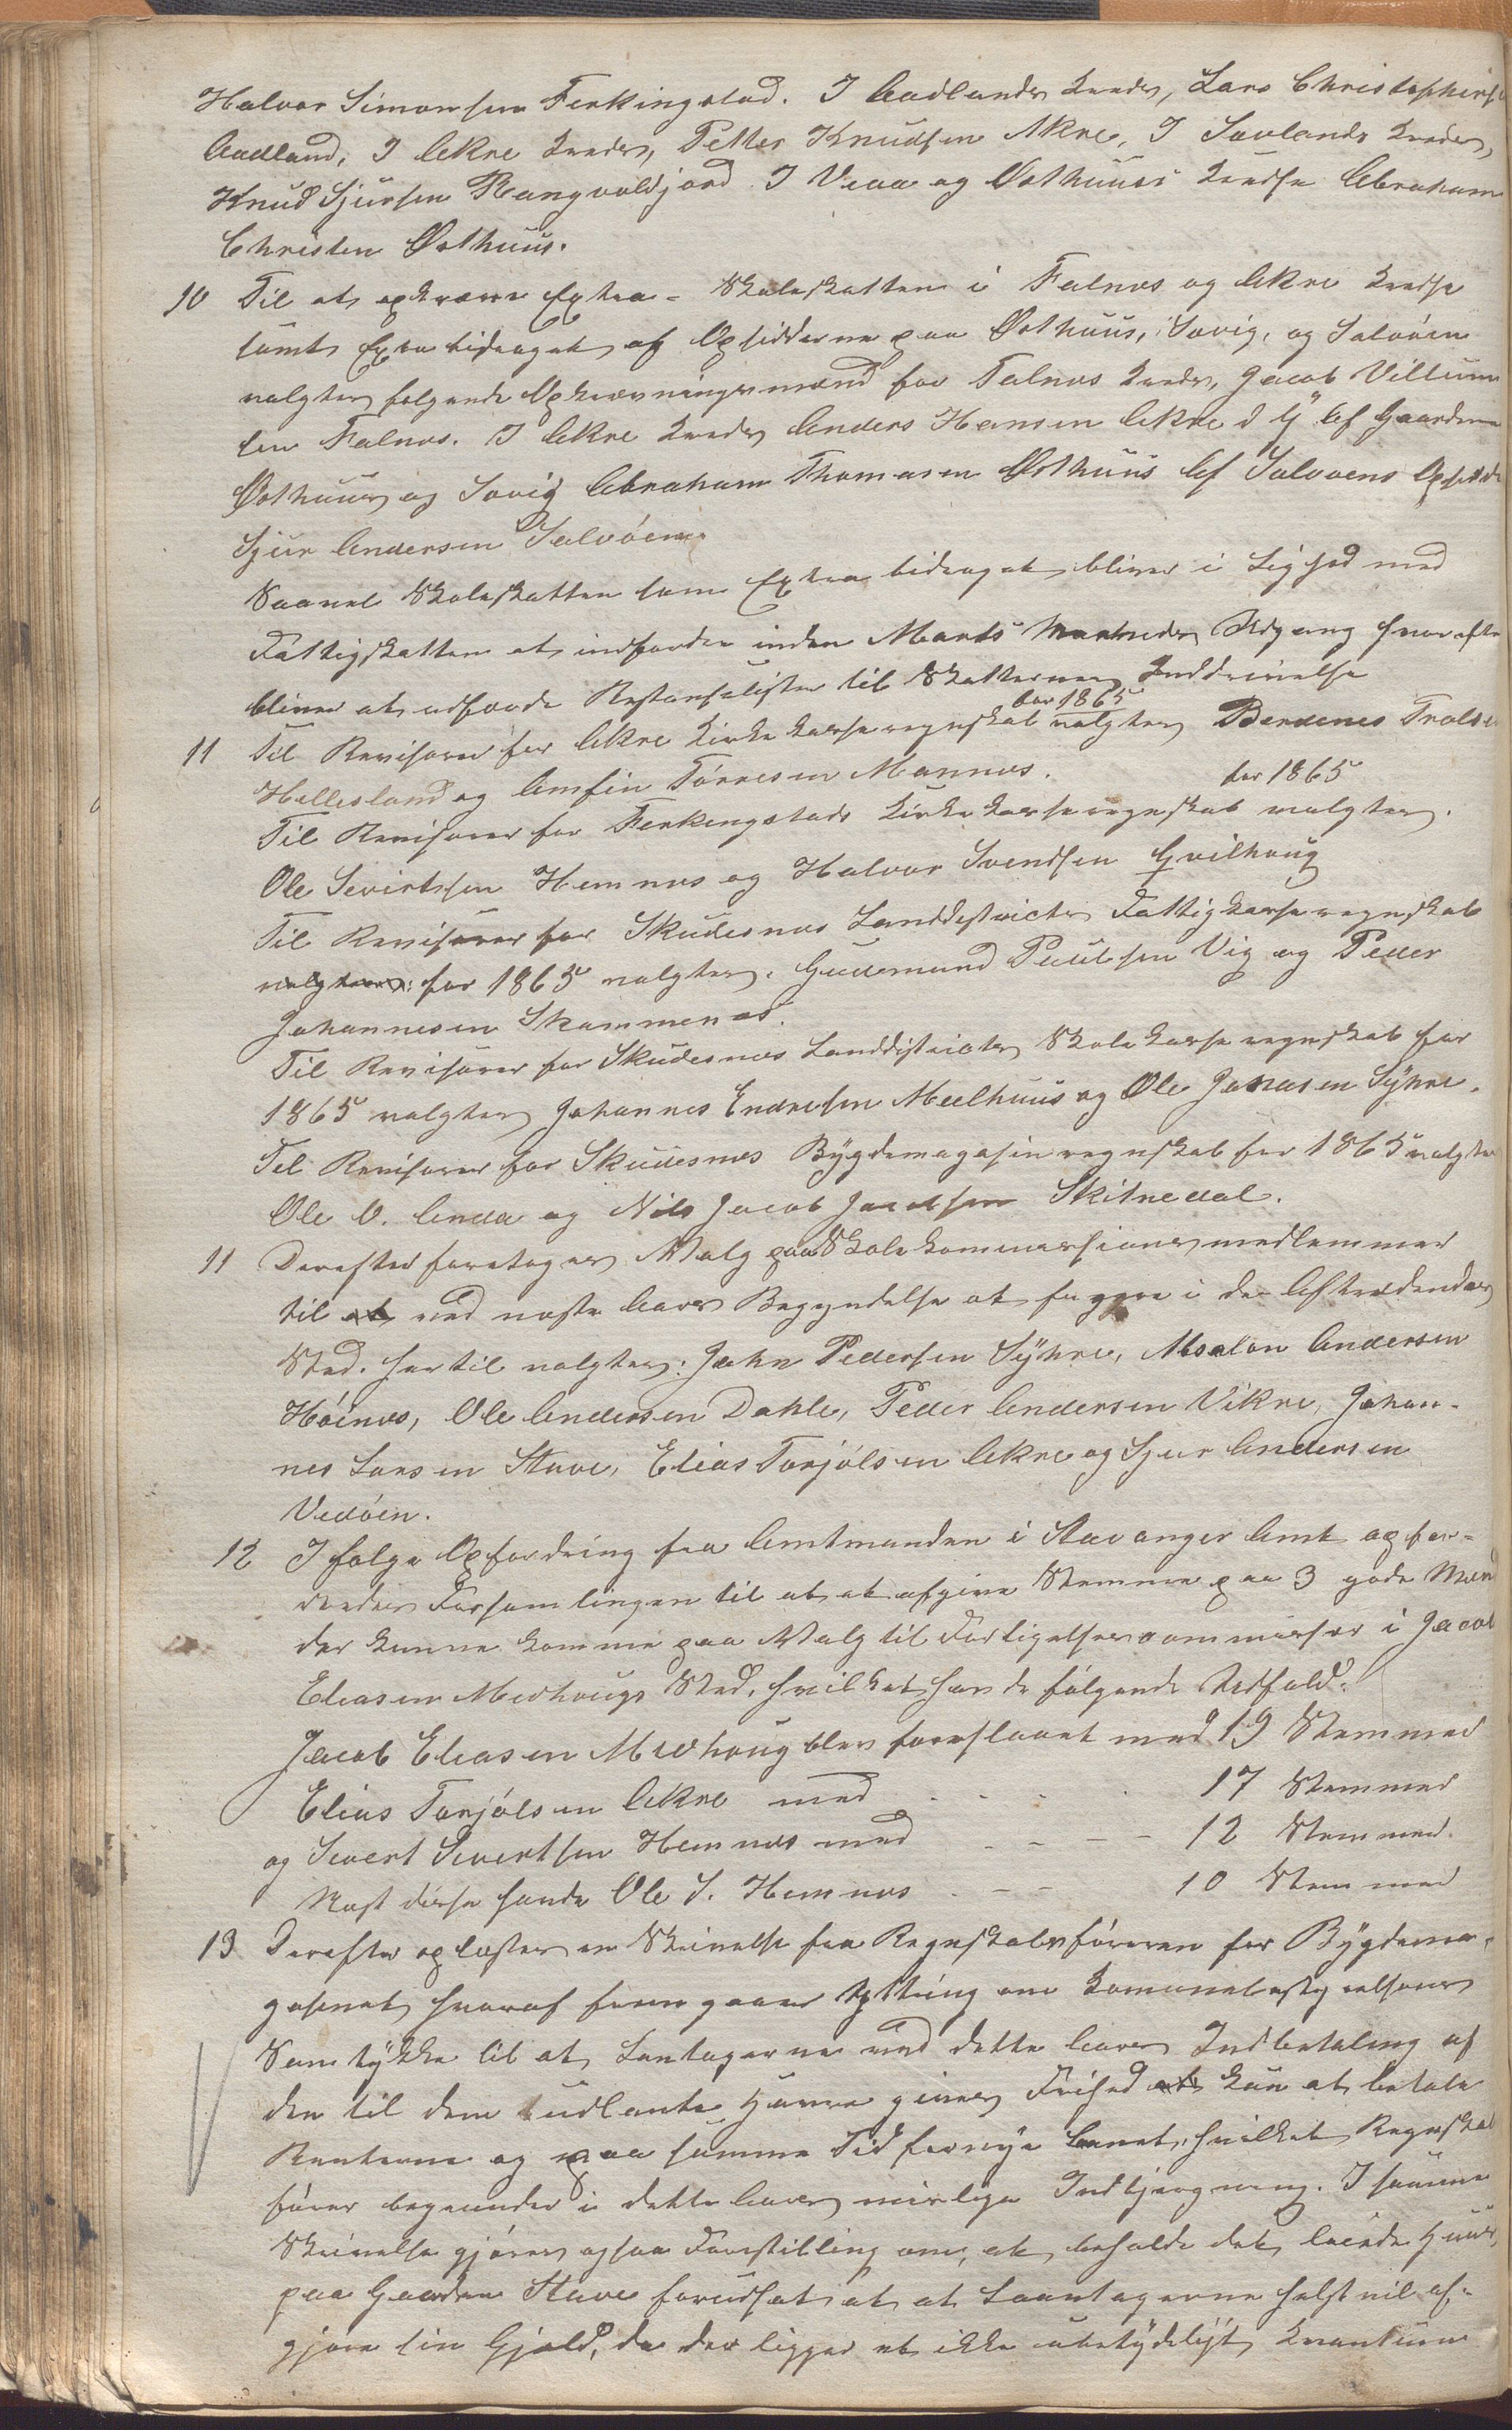 Halvor Simonsen Ferkingstad. I Aadlands Kreds, Lars Christophers
Aadland, I Akre Kreds, Petter Knudsen Akre, I Sævlands Kreds,
Knud Sjursen Rangvaldjord I Veaa og Østhuus Kredse Abraham
Christen Østhuus.
10 Til at opkræve Extra-Skoleskatten i Falnes og Akre Kredse
samt Extrabidraget af Opsidderne paa Østhuus, Sævig, og Salvøen
valgtes følgende Opkrævningsmænd for Falnes Kreds, Jacob Villum
sen Falnes. I Akre Kreds Anders Hansen Akre d y Af Gaardene
Østhuus og Sævig Abraham Thomasen Østhuus Af Salvøens Opsidde
Sjur Andersen Salvøen
Saavel Skoleskatten som Extrabidraget bliver i Lighed med
Fattigskatten at indfordre inden Marts Maaneds Udgang hvorefter
bliver at udfærde Restanselister til Skatternes Inddrivelse
11 Til Revisorer for Akre Kirkekasseregnskab for 1865 valgtes Berdenes Trols
Hellesland og Amfin Tørresen Mannes.
Til Revisorer for Ferkingstads Kirkekasseregnskab for 1865 valgtes.
Ole Sivertsen Hemnes og Halvor Svendsen Hvilhoug
Til Revisorer for Skudesnes Landdistricts Fattigkasseregnskab
valgtes: for 1865 valgtes. Gudemund Paulsen Vig og Peder
Johannesen Skammenes.
Til Revisorer for Skudesnes Landdistricts Skolekasseregnskab for
1865 valgtes Johannes Endresen Meelhuus og Ole Jonasen Syhre.
Til Revisorer for Skudesnes Bygdemagasinregnskab for 1865 valgtes
Ole O. Anda og Nils Jacob Jacobsen Skitnedal.
11 Derefter foretoges Valg paa Skolekommissionsmedlemmer
til at ved næste Aars Begyndelse at fungere i de Aftrædendes
Sted. hertil valgtes: John Pedersen Syhre, Absalon Andersen
Høines, Ole Andersen Dahle, Peder Andersen Vikre, Johan-
nes Larsen Stave, Elias Torjølsen Akre og Sjur Andersen
Vedøen.
12 I følge Opfordring fra Amtmanden i Stavanger Amt opfor-
dredes Forsamlingen til at at afgive Stemme paa 3 gode Mænd
der kunne komme paa Valg til Forligelseskommissær i Jacob
Eliasen Medhougs Sted, hvilket havde følgende Udfald.
Jacob Eliasen Medhoug blev foreslaaet med 19 Stemmer
Elias Torjølsen Akre med . - . . 17 Stemmer
og Sivert Sivertsen Hemnes med - - - - 12 Stemmer.
Næst disse havde Ole S. Hemnes . - - 10 Stemmer
13 Derefter oplæstes en Skrivelse fra Regnskabsføreren for Bygdema-
gasinet, hvoraf fremgaaer Ytring om Komunebestyrelsens
Samtykke til at Laantagerne ved dette Aars Indbetaling af
den til dem udlaante Havre gives Frihed at kun at betale
Renterne og paa samme Tid fornye Laanet, hvilket Regnskab
fører begrunder i dette Aars mislige Indbjergning. I samme
Skrivelse gjøres ogsaa Forestilling om, at beholde det leiede Huus,
paa Gaarden Stave forudsat at at Laantagerne helst vil af-
gjøre sin Gjæld, da der ligger et ikke ubetydeligt Kvantum